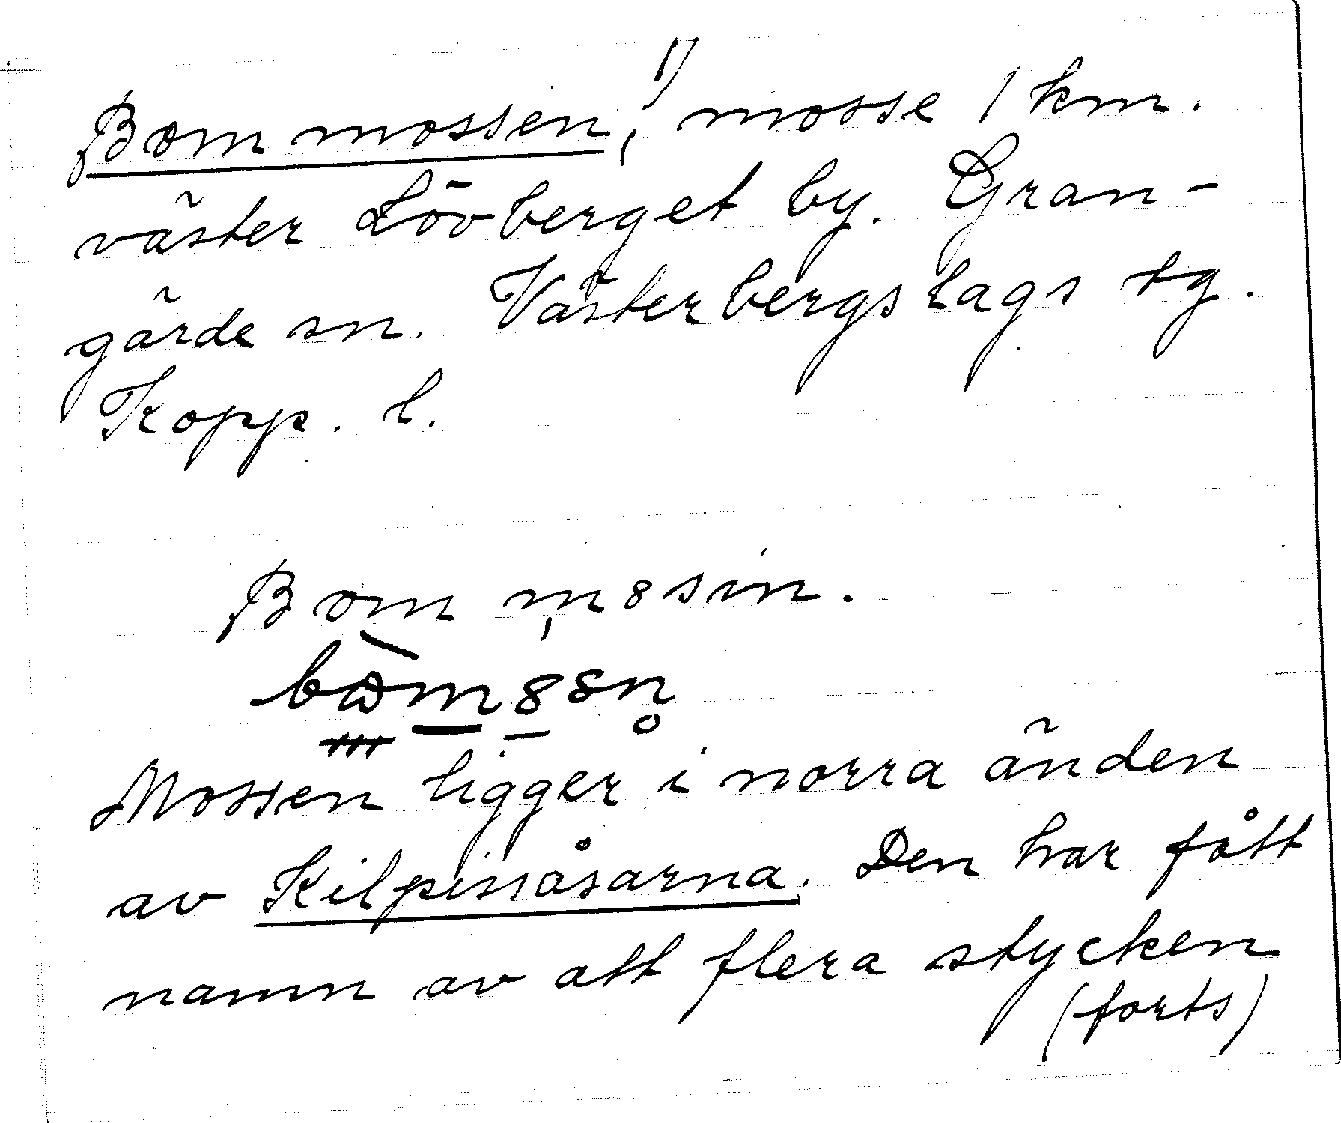 Bommossen,¹⁾ mosse 1 km.
väster Lövberget by. Gran-
gärde sn. Västerbergslags tg.
Kopp. l.
Bom m8sin.
Mossen ligger i norra änden
av Kilpinåsarna. Den har fått
namn av att flera stycken
(forts)